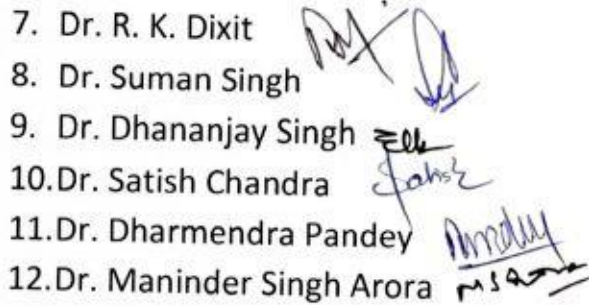 7. Dr. R. K. Dixit
8. Dr. Suman Singh
9. Dr. Dhananjay Singh
10.Dr. Satish Chandra Satish
11.Dr. Dharmendra Pandey
12.Dr. Maninder Singh Arora MSArora